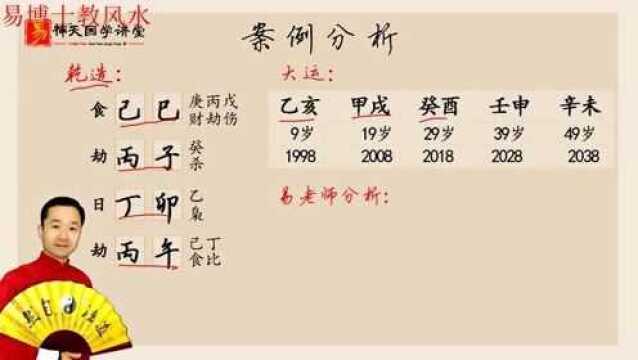 易博士教风水
易 天国学讲堂
案例分析
乾造：
食 己 巳 庚丙戊
财劫伤
劫 丙 子 癸
杀
日 丁 卯 乙
枭
劫 丙 午 己丁
食比
大运：
乙亥 甲戌 癸酉 壬申 辛未
9岁 19岁 29岁 39岁 49岁
1998 2008 2018 2028 2038
易老师分析：